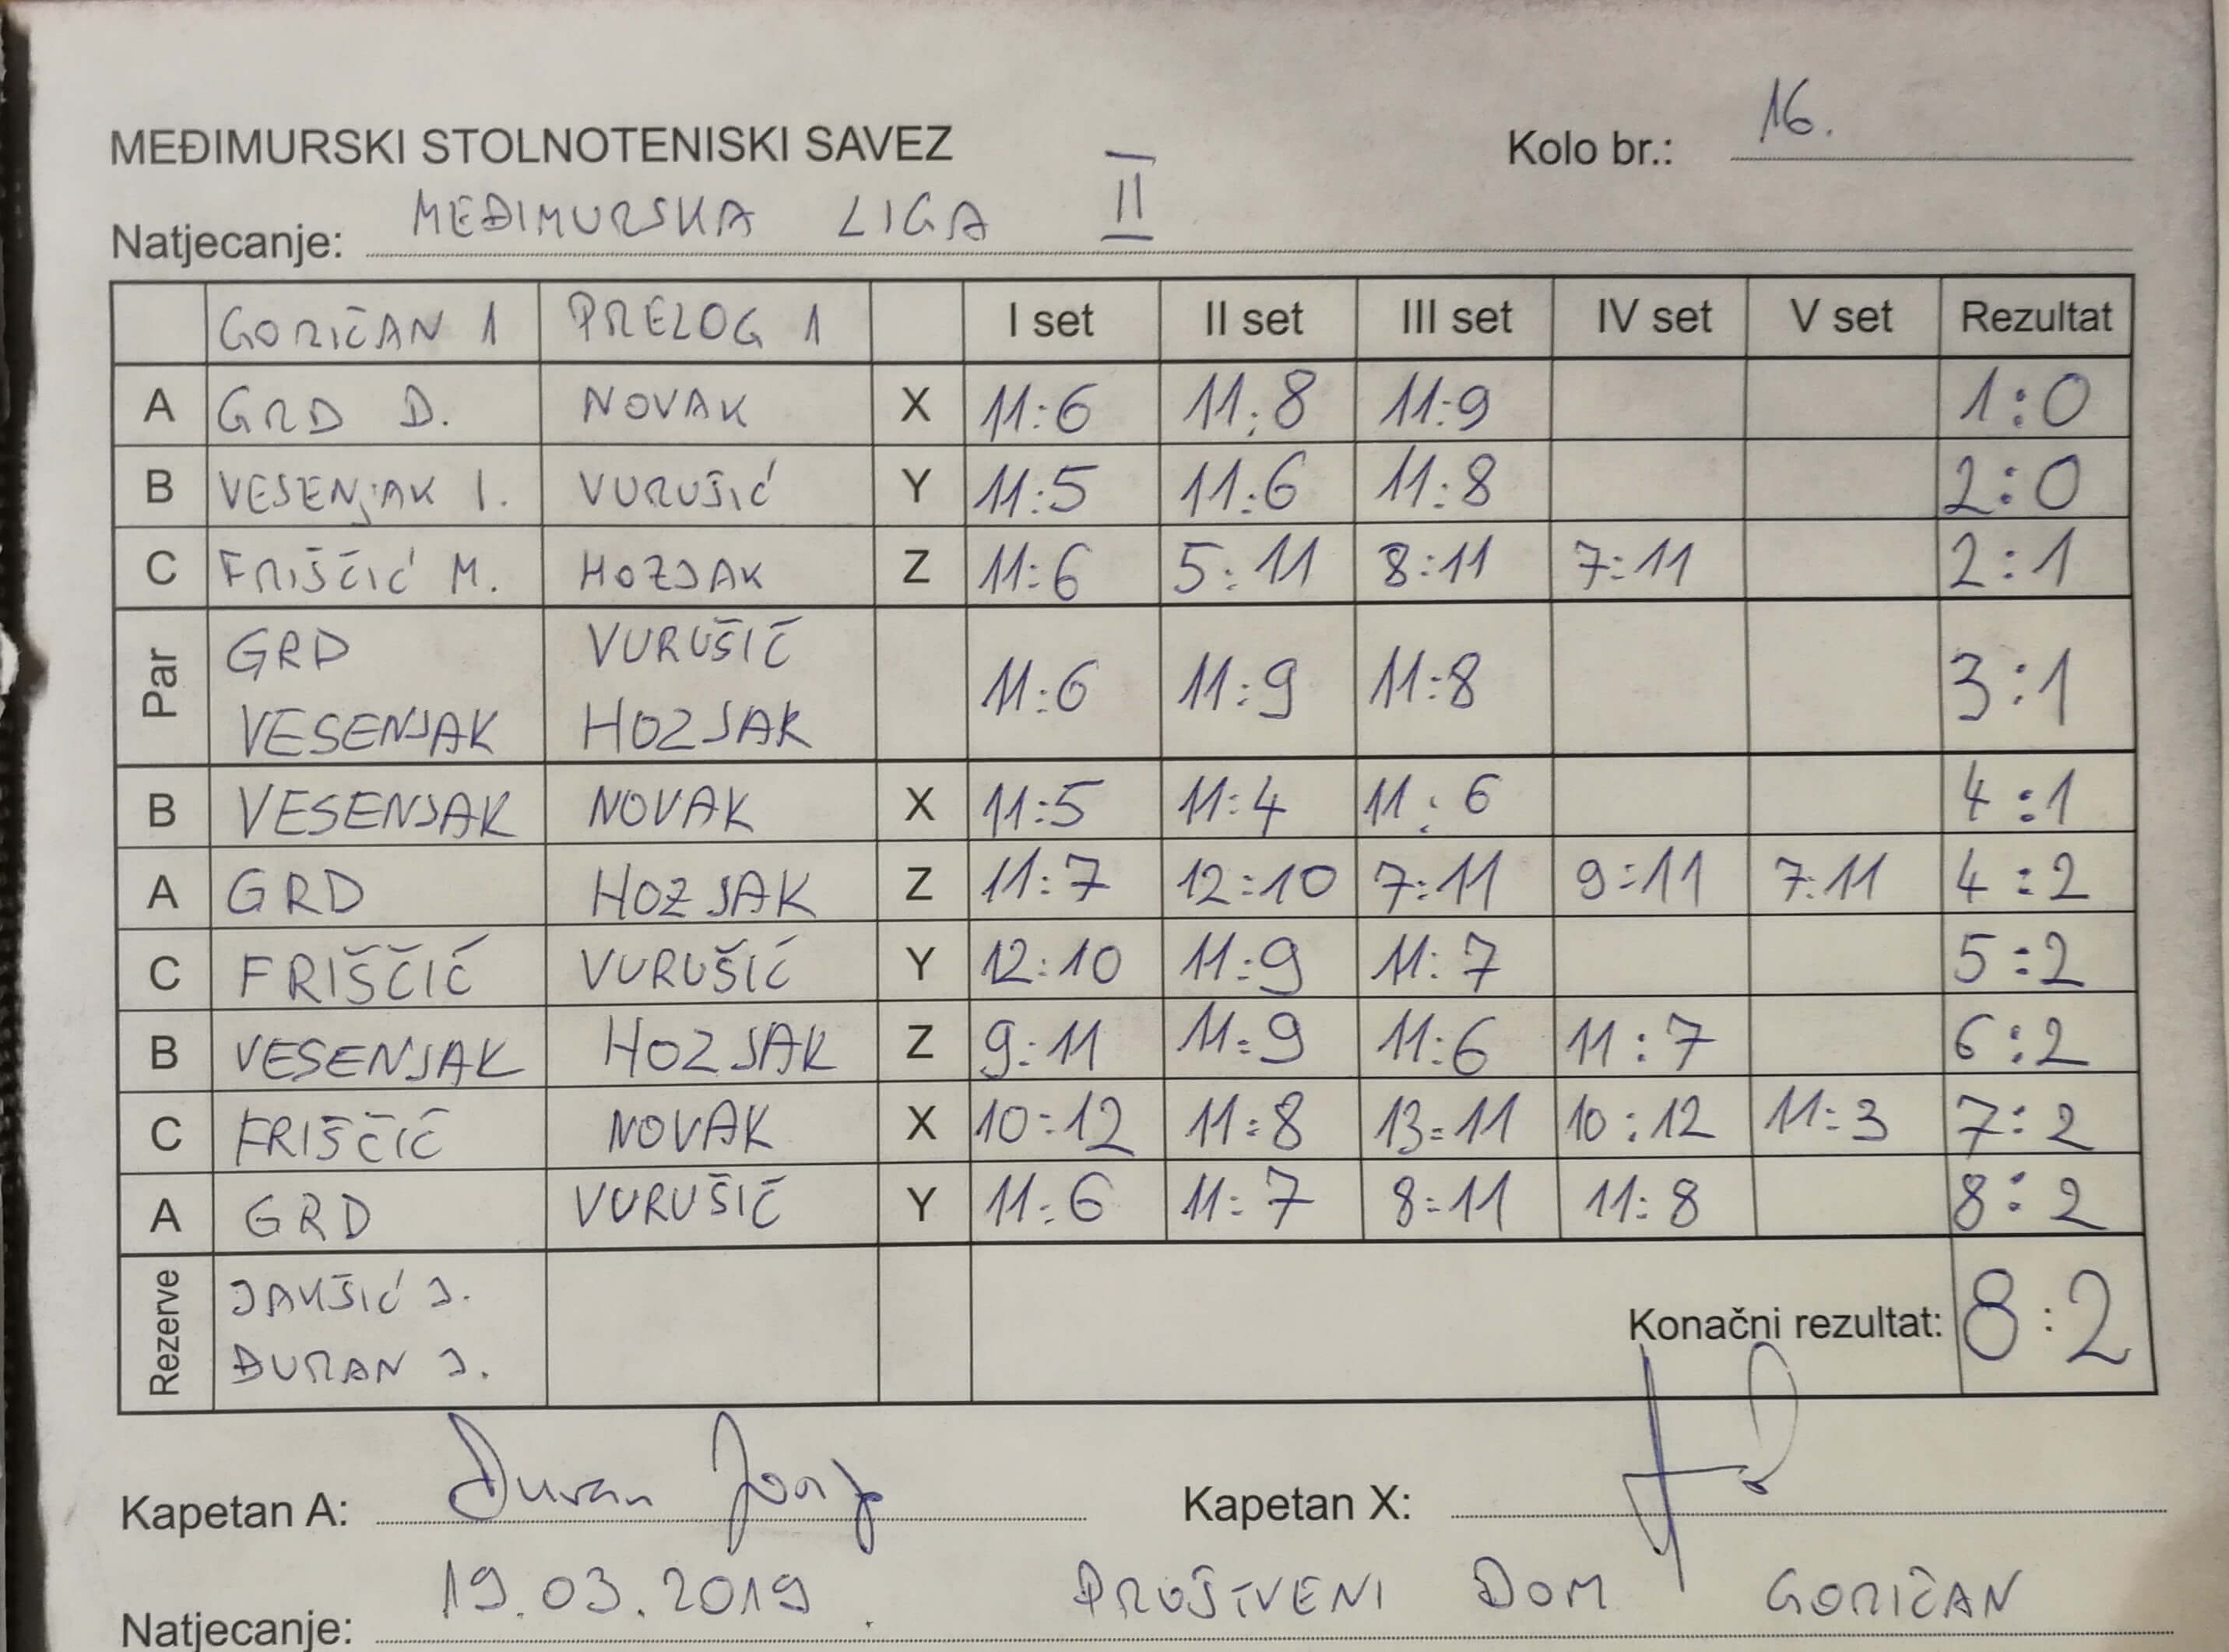 MEĐIMURSKI STOLNOTENISKI SAVEZ
Kolo br.: 16.
Natjecanje: MEĐIMURSKA LIGA II
GORIČAN 1 PRELOG 1 I set II set III set IV set V set Rezultat
A GRD D. NOVAK X 11:6 11:8 11:9 1:0
B VESENJAK I. VURUŠIĆ Y 11:5 11:6 11:8 2:0
C FRIŠČIĆ M. HOZJAK Z 11:6 5:11 8:11 7:11 2:1
Par GRD VURUŠIĆ 11:6 11:9 11:8 3:1
VESENJAK HOZJAK
B VESENJAK NOVAK X 11:5 11:4 11:6 4:1
A GRD HOZJAK Z 11:7 12:10 7:11 9:11 7:11 4:2
C FRIŠČIĆ VURUŠIĆ Y 12:10 11:9 11:7 5:2
B VESENJAK HOZJAK Z 9:11 11:9 11:6 11:7 6:2
C FRIŠČIĆ NOVAK X 10:12 11:8 13:11 10:12 11:3 7:2
A GRD VURUŠIĆ Y 11:6 11:7 8:11 11:8 8:2
Rezerve JAKŠIĆ J.
ĐURAN J.
Konačni rezultat: 8:2
Kapetan A: Đuran Josip Kapetan X:
Natjecanje: 19.03.2019. DRUŠTVENI DOM GORIČAN